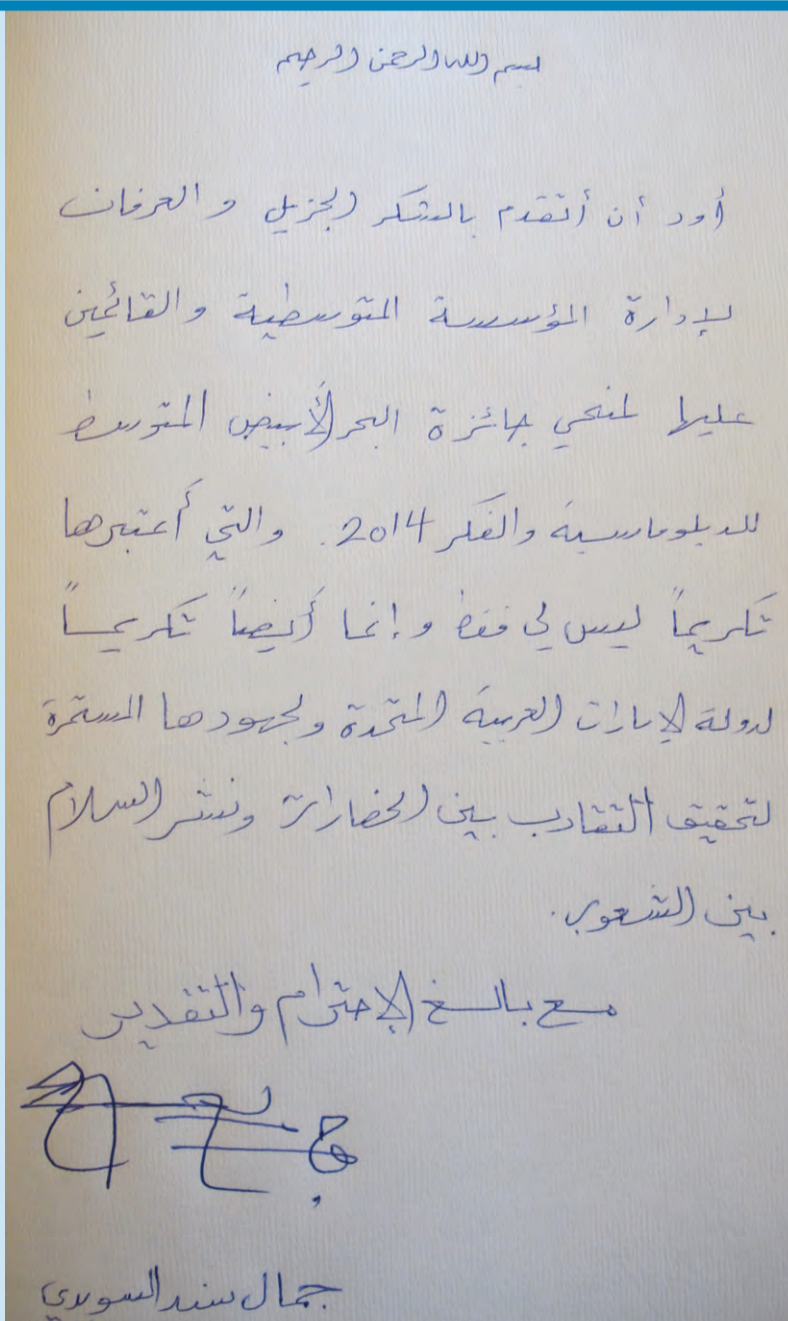 بسم الله الرحمن الرحيم
أود أن أتقدم بالشكر الجزيل والعرفان
لإدارة المؤسسة المتوسطية والقائمين
عليها لمنحي جائزة البحر الأبيض المتوسط
للدبلوماسية والفكر 2014. والتي أعتبرها
تكريماً ليس لي فقط وإنما أيضاً تكريماً
لدولة الإمارات العربية المتحدة ولجهودها المستمرة
لتحقيق التقارب بين الحضارات ونشر السلام
بين الشعوب.
مع بالغ الاحترام والتقدير
جمال سند السويدي